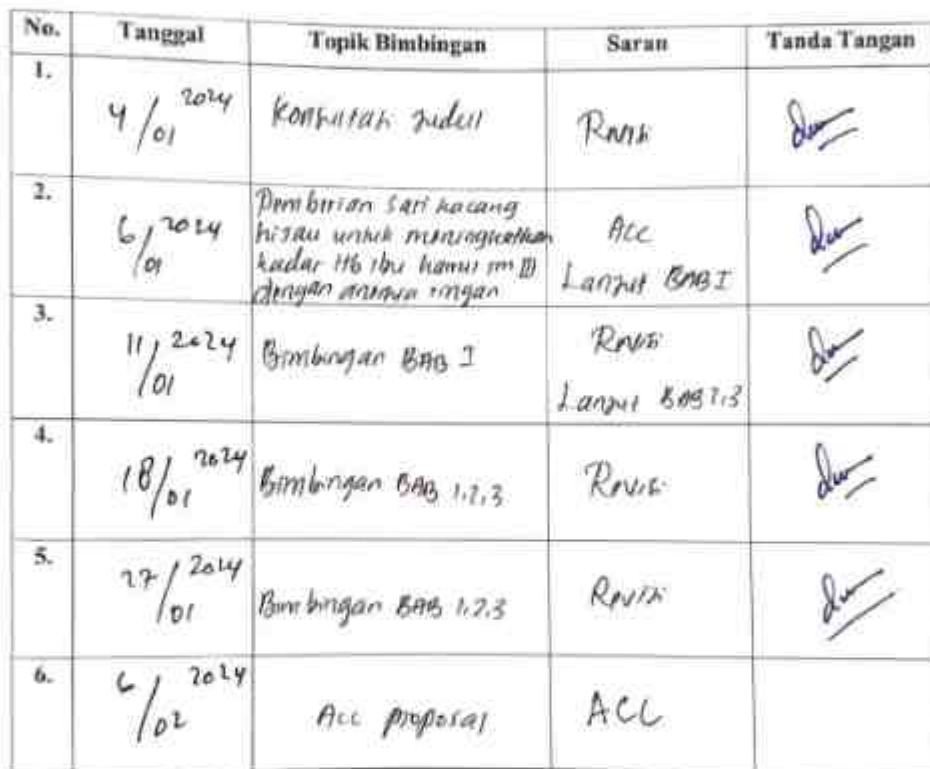 No. Tanggal Topik Bimbingan Saran Tanda Tangan
1. 4/01 2024 Konsultasi Judul Revisi
2. 6/01 2024 Pemberian Sari kacang
hijau untuk meningkatkan ACC
kadar Hb ibu hamil TM III
dengan anemia ringan Lanjut BAB I
3. 11/01 2024 Bimbingan BAB I Revisi
Lanjut BAB 2,3
4. 18/01 2024 Bimbingan BAB 1,2,3 Revisi
5. 27/01 2024 Bimbingan BAB 1,2,3 Revisi
6. 6/02 2024 Acc proposal ACC